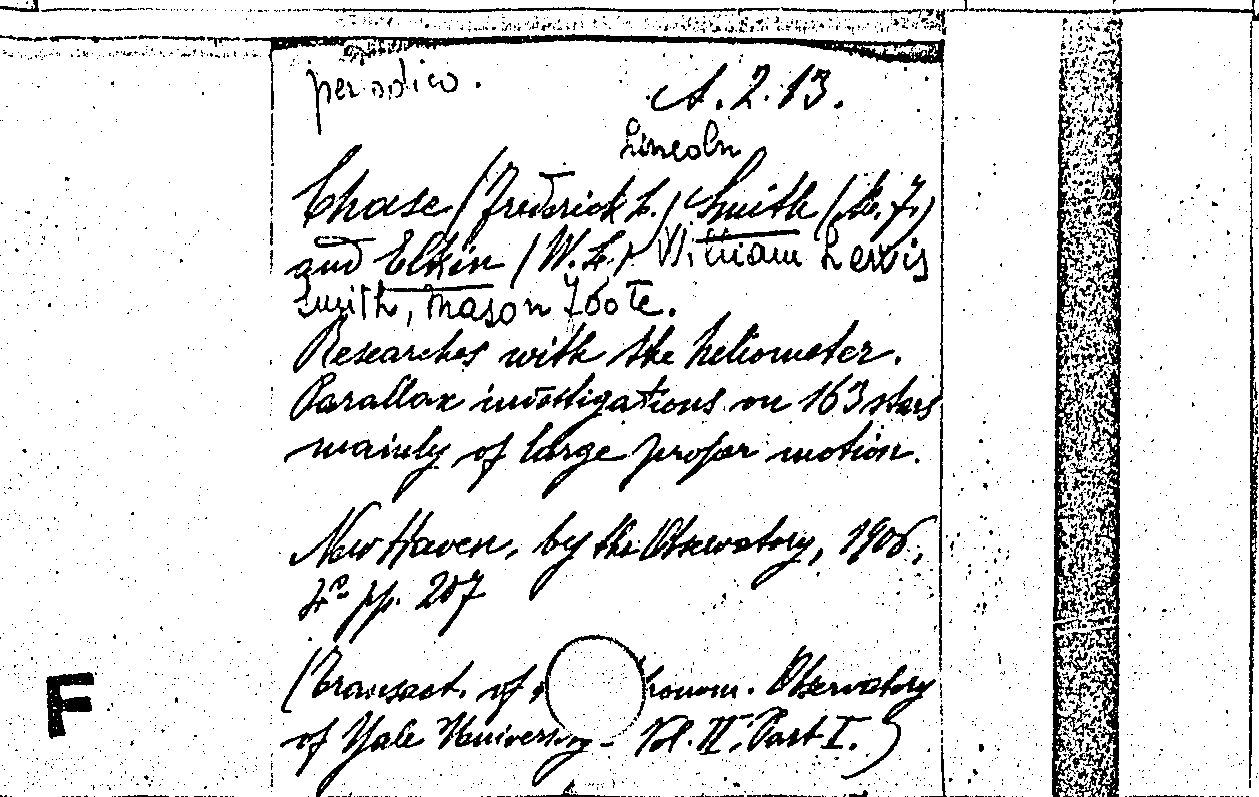 periodico.
A.2.13.
Lincoln
Chase (Frederick L.) Smith (M. F.)
and Elkin (W. L.) William Lewis
Smith, Mason Foote.
Researches with the heliometer.
Parallax investigations on 163 stars
mainly of large proper motion.
New Haven, by the Observatory, 1906.
4° pp. 207
(Transact. of
tronom. Observatory
of Yale University - Vol. II. Part I.)
F